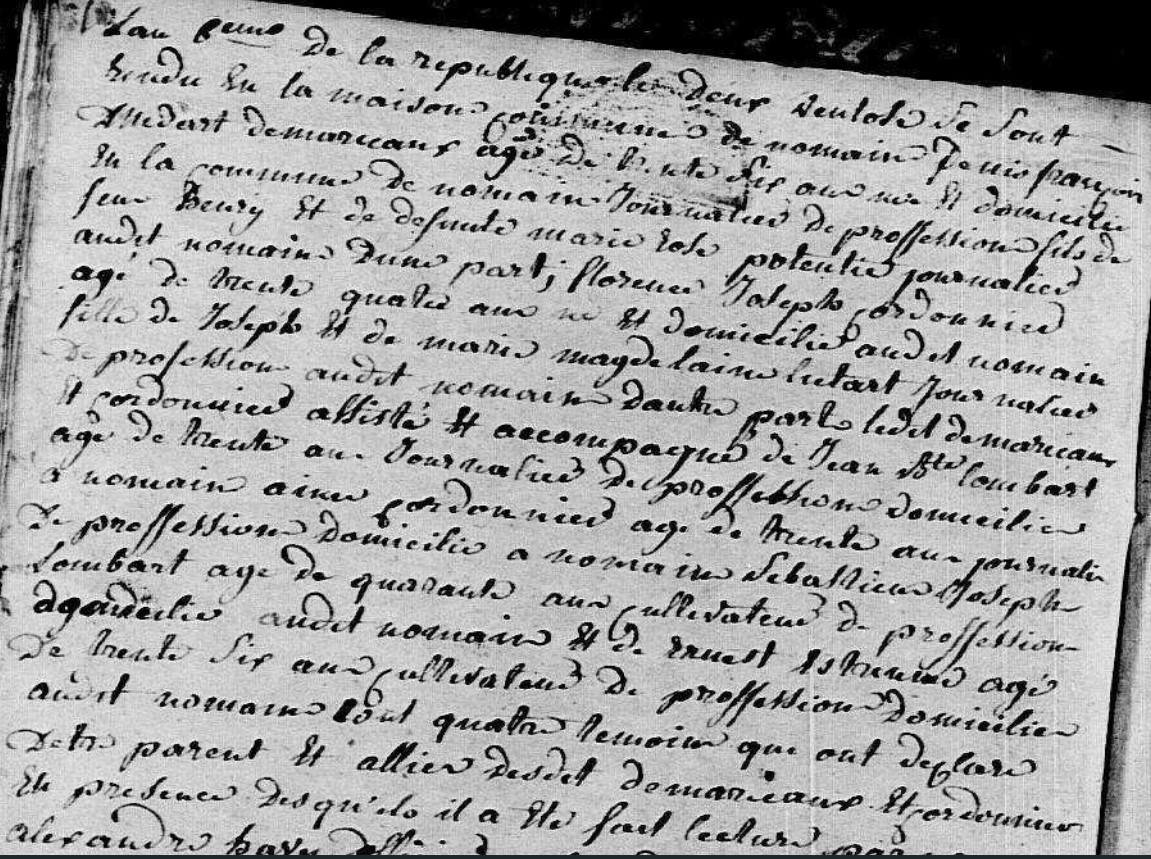 Lan de la republique le deux ventose se sont
rendu En la maison commune de nomain Denis françois
Medart demareaux agé de trente six ans né Et domicilié
En la commune de nomain Journalier de proffession fils de
feux Henry Et de defunte marie rose potentie journalier
audit nomain dune part; florence Joseph cordonnier
agé de trente quatre ans né Et domicilié audit nomain
fille de Joseph Et de marie magdelaine lietart Journalier
De profession audit nomain dautre part ledit demareaux
Et cordonnier assisté Et accompagné de Jean Bte lombart
agé de trente ans Journalier De proffession domicilié
a nomain aimé cordonnier agé de trente ans journalier
De proffession domicilié a nomain Sebastien Joseph
Lombart agé de quarante ans cultivateur de proffession
domicilié audit nomain Et de Ernest agé
De trente six ans cultivateur De proffession Domicilié
audit nomain tout quatre temoins qui ont declaré
Detre parent Et allier desdit demareaux Et cordonnier
En presence desquels il a Eté fait lecture par
alexandre